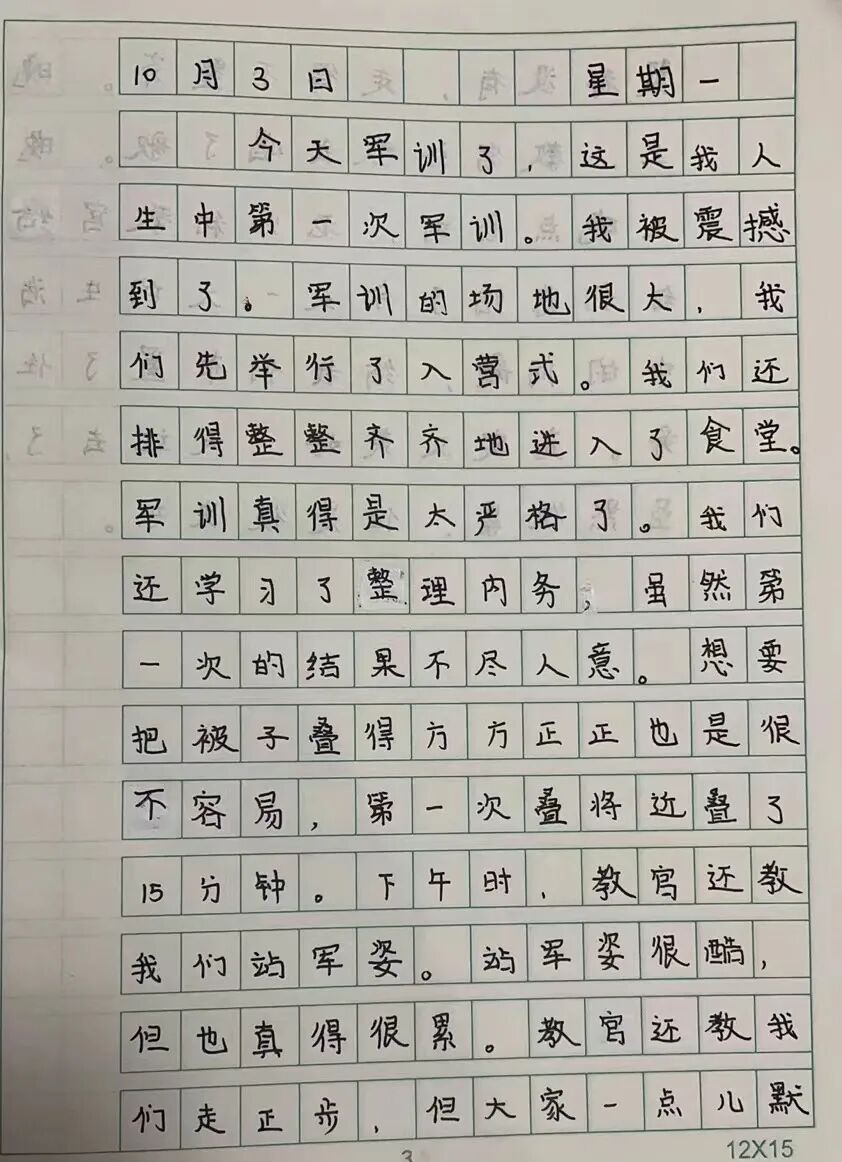 10月3日 星期一
今天军训了，这是我人
生中第一次军训。我被震撼
到了。军训的场地很大，我
们先举行了入营式。我们还
排得整整齐齐地进入了食堂。
军训真得是太严格了。我们
还学习了整理内务，虽然第
一次的结果不尽人意。想要
把被子叠得方方正正也是很
不容易，第一次叠将近叠了
15分钟。下午时，教官还教
我们站军姿。站军姿很酷，
但也真得很累。教官还教我
们走正步，但大家一点儿默
3
12X15